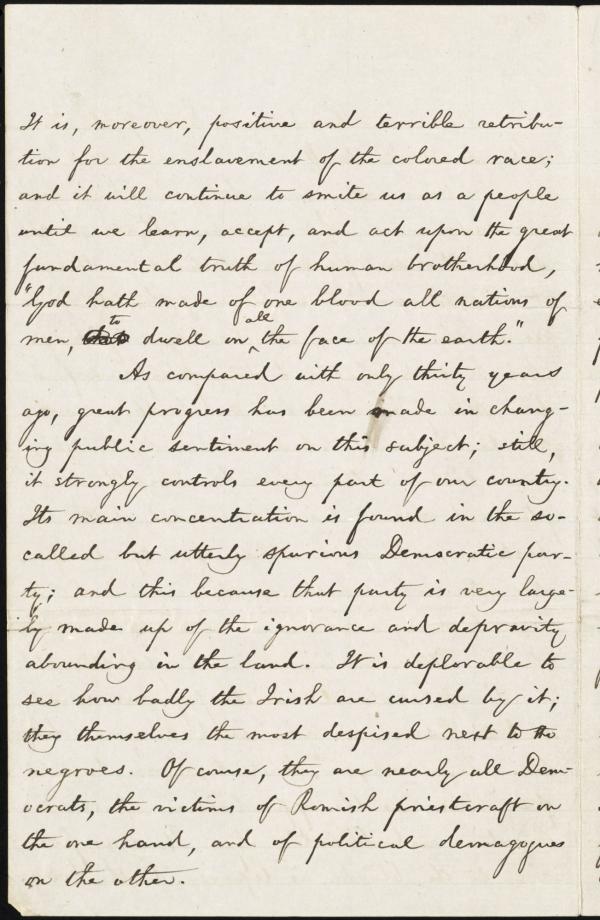 It is, moreover, positive and terrible retribu-
tion for the enslavement of the colored race;
and it will continue to smite us as a people
until we learn, accept, and act upon the great
fundamental truth of human brotherhood,
"God hath made of one blood all nations of
men, to dwell on all the face of the earth."
As compared with only thirty years
ago, great progress has been made in chang-
ing public sentiment on this subject; still,
it strongly controls every part of our country.
Its main concentration is found in the so-
called but utterly spurious Democratic par-
ty; and this because that party is very large-
ly made up of the ignorance and depravity
abounding in the land. It is deplorable to
see how badly the Irish are cursed by it;
they themselves the most despised next to the
negroes. Of course, they are nearly all Dem-
ocrats, the victims of Romish priestcraft on
the one hand, and of political demagogues
on the other.